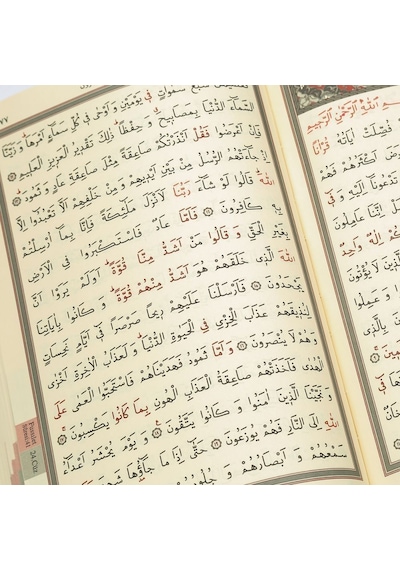 اللّٰهِ الرَّحْمٰنِ الرَّحِيمِ
فُصِّلَتْ اٰيَاتُهُ قُرْاٰنًا
اَكْثَرُهُمْ فَهُمْ
تَدْعُونَا اِلَيْهِ وَفِي
اِنَّنَا عَامِلُونَ
اِلٰهٌ وَاحِدٌ
لَا يُؤْتُونَ
وَعَمِلُوا
بِالَّذِي
٤٧٧
سَبْعَ سَمٰوَاتٍ فِي يَوْمَيْنِ وَاَوْحٰى فِي كُلِّ سَمَاءٍ اَمْرَهَا وَزَيَّنَّا
السَّمَاءَ الدُّنْيَا بِمَصَابِيحَ وَحِفْظًا ذٰلِكَ تَقْدِيرُ الْعَزِيزِ الْعَلِيمِ
فَاِنْ اَعْرَضُوا فَقُلْ اَنْذَرْتُكُمْ صَاعِقَةً مِثْلَ صَاعِقَةِ عَادٍ وَثَمُودَ
اِذْ جَاءَتْهُمُ الرُّسُلُ مِنْ بَيْنِ اَيْدِيهِمْ وَمِنْ خَلْفِهِمْ اَلَّا تَعْبُدُوا اِلَّا
اللّٰهَ قَالُوا لَوْ شَاءَ رَبُّنَا لَاَنْزَلَ مَلٰئِكَةً فَاِنَّا بِمَا اُرْسِلْتُمْ
بِهِ كَافِرُونَ فَاَمَّا عَادٌ فَاسْتَكْبَرُوا فِي الْاَرْضِ
بِغَيْرِ الْحَقِّ وَقَالُوا مَنْ اَشَدُّ مِنَّا قُوَّةً اَوَلَمْ يَرَوْا اَنَّ
اللّٰهَ الَّذِي خَلَقَهُمْ هُوَ اَشَدُّ مِنْهُمْ قُوَّةً وَكَانُوا بِاٰيَاتِنَا
يَجْحَدُونَ فَاَرْسَلْنَا عَلَيْهِمْ رِيحًا صَرْصَرًا فِي اَيَّامٍ نَحِسَاتٍ
لِنُذِيقَهُمْ عَذَابَ الْخِزْيِ فِي الْحَيٰوةِ الدُّنْيَا وَلَعَذَابُ الْاٰخِرَةِ اَخْزٰى
وَهُمْ لَا يُنْصَرُونَ وَاَمَّا ثَمُودُ فَهَدَيْنَاهُمْ فَاسْتَحَبُّوا الْعَمٰى عَلَى
الْهُدٰى فَاَخَذَتْهُمْ صَاعِقَةُ الْعَذَابِ الْهُونِ بِمَا كَانُوا يَكْسِبُونَ
وَنَجَّيْنَا الَّذِينَ اٰمَنُوا وَكَانُوا يَتَّقُونَ وَيَوْمَ يُحْشَرُ اَعْدَاءُ
اللّٰهِ اِلَى النَّارِ فَهُمْ يُوزَعُونَ حَتّٰى اِذَا مَا جَاؤُهَا شَهِدَ
سَمْعُهُمْ وَاَبْصَارُهُمْ وَجُلُودُهُمْ
Fussilet 24.Cüz
Sûresi